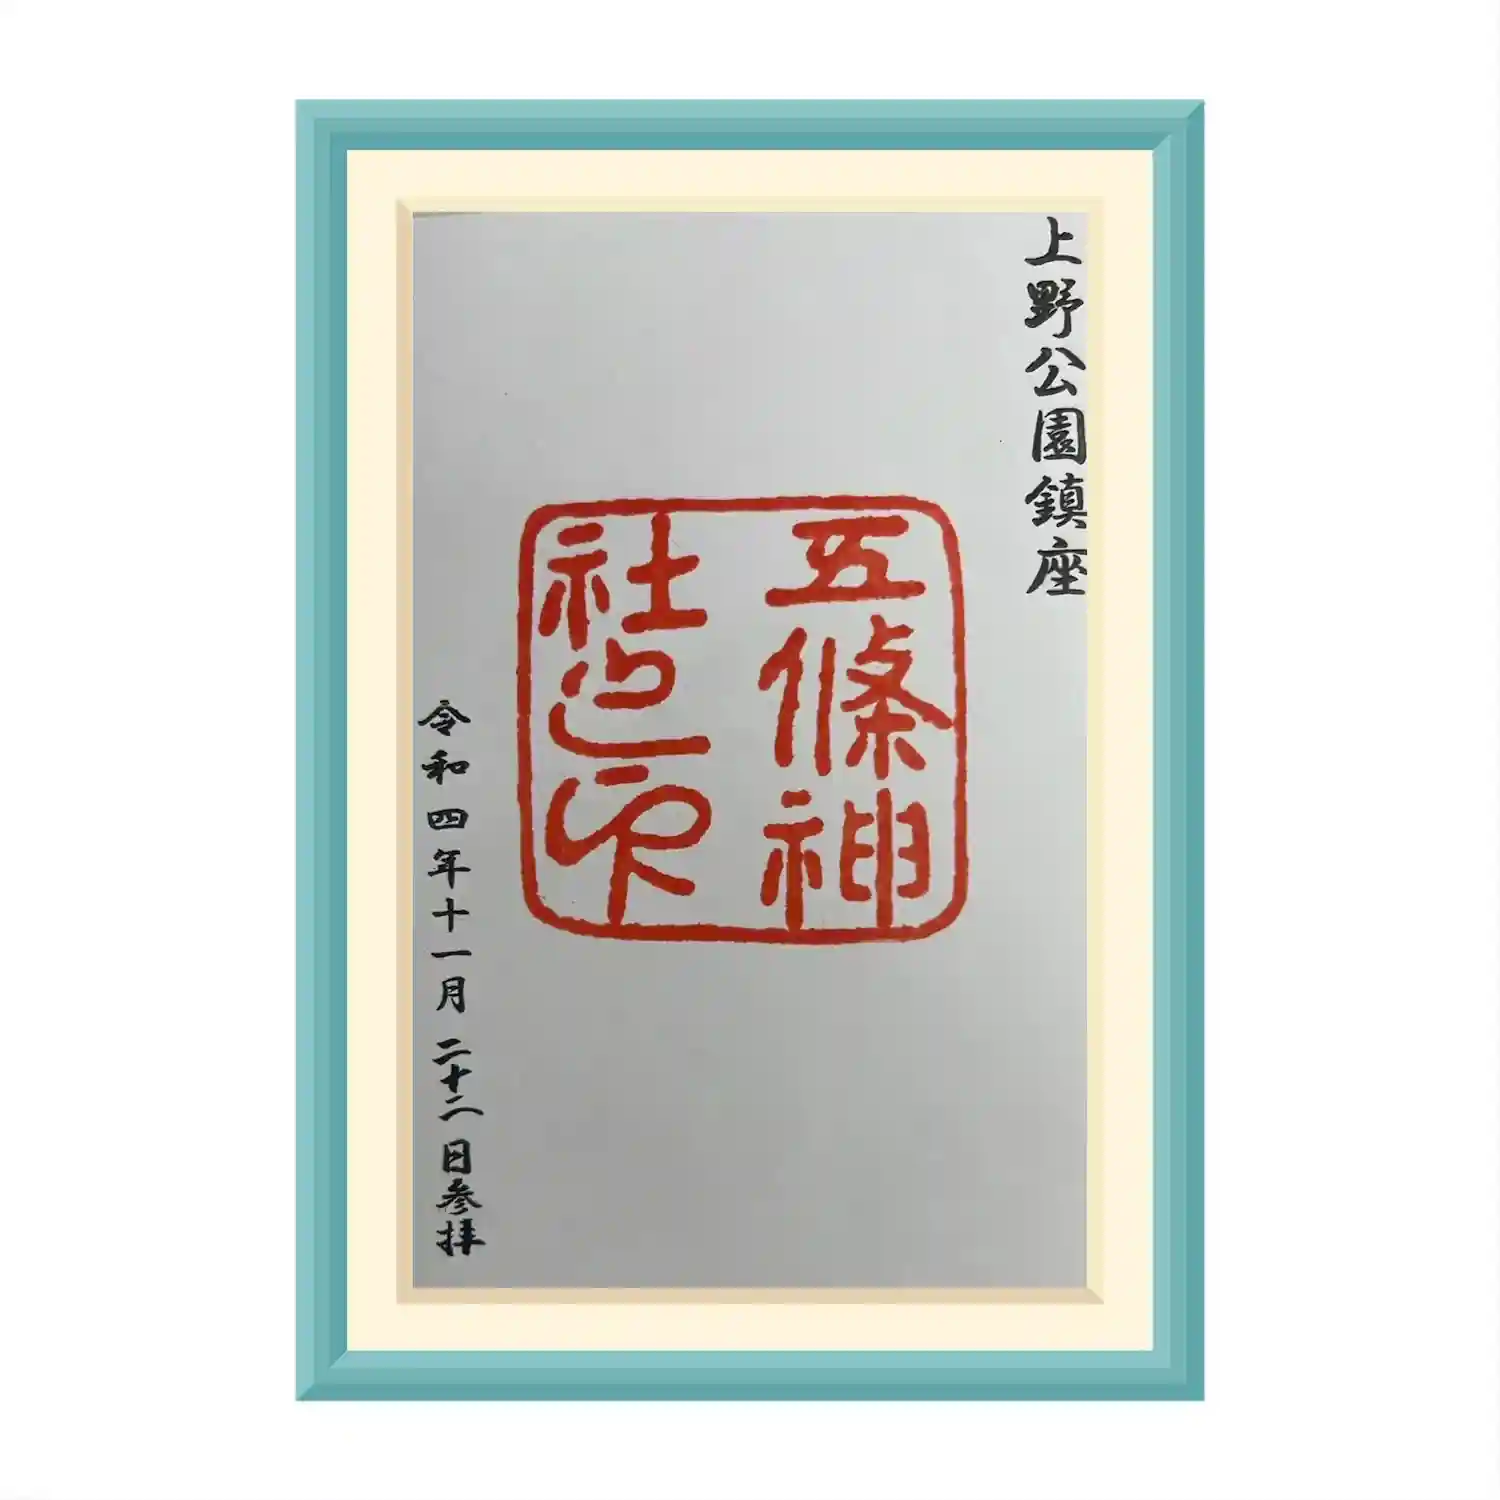 上野公園鎮座
五條神
社之印
令和四年十一月二十二日参拝